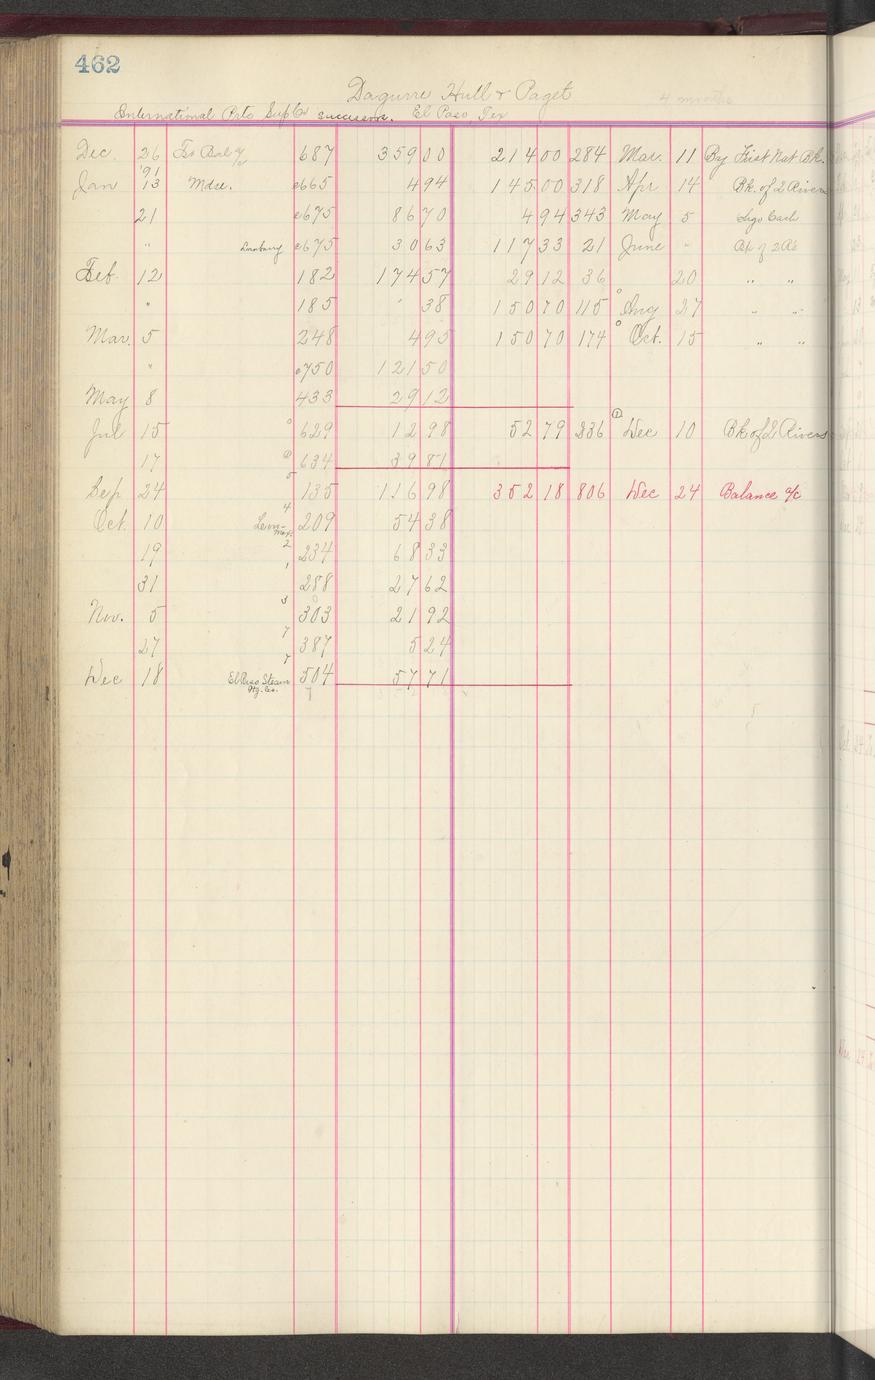 462
Daguirre Hull & Paget 4 months
International Pvts Sup Co successors. El Paso, Tex
Dec. 26 To Bal a/c 687 359 00 214 00 284 Mar. 11 By First Nat Bk.
'91
Jan 13 Mdse. 665 4 94 145 00 318 Apr 14 Bk. of 2 Rivers
21 675 86 70 4 94 343 May 5 Cash
" 675 30 63 117 33 21 June " Bk of 2 Rs
Feb. 12 182 174 57 29 12 36 20 " "
" 185 38 150 70 115 Aug 27 " "
Mar. 5 248 4 95 150 70 174 Oct. 15 " "
" 750 121 50
May 8 433 29 12
Jul 15 629 12 98 52 79 336 Dec 10 Bk of 2 Rivers
17 634 39 81
Sep 24 135 116 98 352 18 806 Dec 24 Balance a/c
Oct. 10 209 54 38
19 234 68 33
31 288 27 62
Nov. 5 303 21 92
27 387 5 24
Dec 18 El Paso Steam 504 57 71